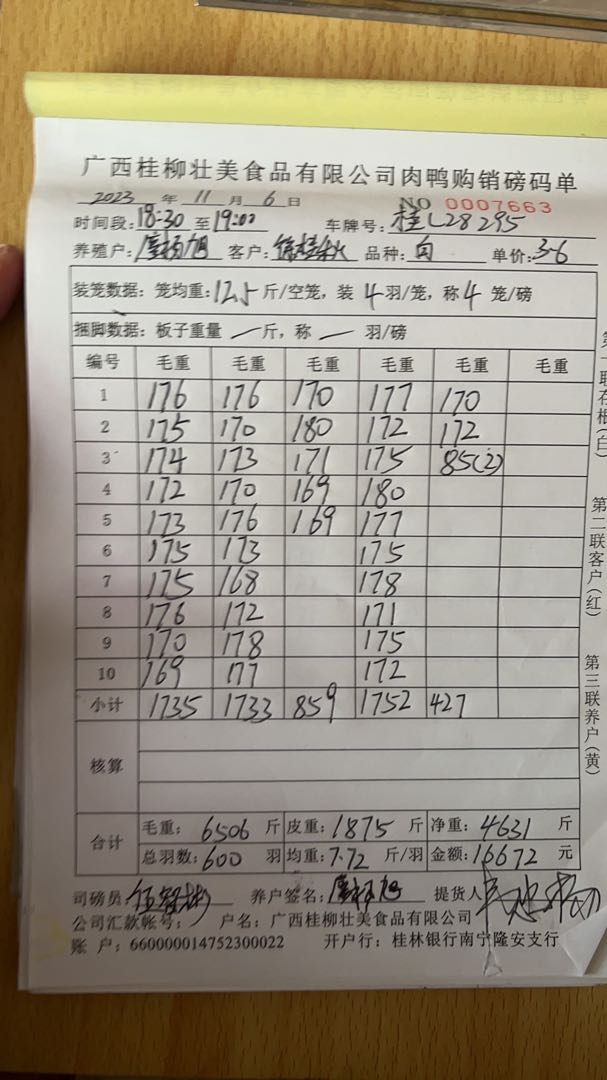 广西桂柳壮美食品有限公司肉鸭购销磅码单
2023 年 11 月 6 日 NO 0007663
时间段:18:30 至19:00 车牌号:桂L28295
养殖户: 客户:徐桂秋 品种: 白 单价:3.6
装笼数据: 笼均重:12.5斤/空笼, 装 4 羽/笼, 称 4 笼/磅
捆脚数据: 板子重量 一 斤, 称 一 羽/磅
编号 毛重 毛重 毛重 毛重 毛重 毛重
1 176 176 170 177 170
2 175 170 180 172 172
3 174 173 171 175 85(2)
4 172 170 169 180
5 173 176 169 177
6 175 173 175
7 175 168 178
8 176 172 171
9 170 178 175
10 169 177 172
小计 1735 1733 859 1752 427
核算
合计 毛重: 6506 斤 皮重: 1875 斤 净重: 4631 斤
总羽数: 600 羽 均重: 7.72 斤/羽 金额: 16672 元
司磅员 养户签名: 提货人
公司汇款帐号: 户名: 广西桂柳壮美食品有限公司
账 户: 660000014752300022 开户行: 桂林银行南宁隆安支行
第一联存根(白)
第二联客户(红)
第三联养户(黄)